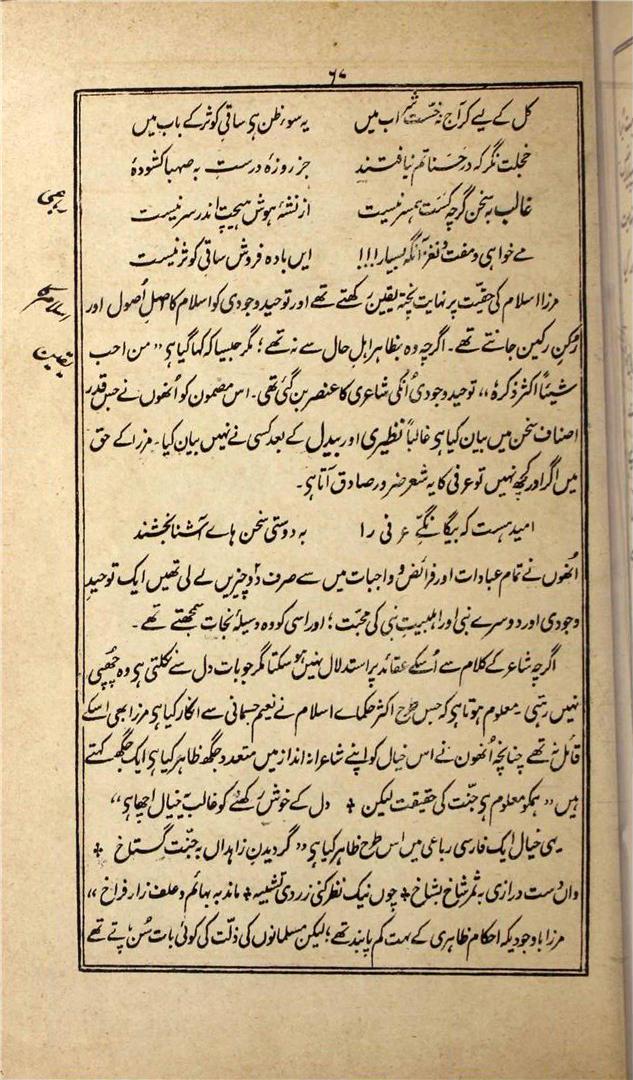 ۶۸
کل کے لیے کر آج نہ خسّت شراب میں یہ سوءِ ظن ہی ساقیِ کوثر کے باب میں
خجلت نگر کہ در حسناتم نیافتند جز روزۂ درست بہ صہبا کشودۂ
غالب بہ سخن گرچہ کست ہمسر نیست از نشۂ ہوش ہیچت اندر سر نیست
رباعی
مے خواہی و مفت و نغز و آنگہ بسیار!!! ایں بادہ فروش ساقی کوثر نیست
مرزا اسلام کی حقیّت پر نہایت پختہ یقین رکھتے تھے اور توحید وجودی کو اسلام کا اصلِ اُصول اور
اسلام کا
رُکنِ رکین جانتے تھے۔ اگرچہ وہ بظاہر اہلِ حال سے نہ تھے؛ مگر جیسا کہ کہا گیا ہی ”من احب
یقین
شیئاً اکثر ذکرہٗ“ توحید وجودی اُنکی شاعری کا عنصر بن گئی تھی۔ اس مضمون کو اُنھوں نے جس قدر
اصنافِ سخن میں بیان کیا ہی غالباً نظیری اور بیدل کے بعد کسی نے نہیں بیان کیا۔ مرزا کے حق
میں اگر اور کچھ نہیں تو عرفی کا یہ شعر ضرور صادق آتا ہی۔
امید ہست کہ بیگانگیِ عرفی را بہ دوستی سخن ہاے آشنا بخشند
اُنھوں نے تمام عبادات اور فرائض و واجبات میں سے صرف دو چیزیں لے لی تھیں ایک توحیدِ
وجودی اور دوسرے نبی اور اہلبیتِ نبی کی محبّت؛ اور اسی کو وہ وسیلۂ نجات سمجھتے تھے۔
اگرچہ شاعر کے کلام سے اُسکے عقائد پر استدلال نہیں ہو سکتا مگر جو بات دل سے نکلتی ہی وہ چھپی
نہیں رہتی۔ معلوم ہوتا ہی کہ جس طرح اکثر حکماے اسلام نے نعیم جسمانی سے انکار کیا ہی مرزا بھی اسکے
قائل نہ تھے چنانچہ اُنھوں نے اس خیال کو اپنے شاعرانہ انداز میں متعدد جگہ ظاہر کیا ہی ایک جگہ کہتے
ہیں ”ہمکو معلوم ہی جنّت کی حقیقت لیکن ٭ دل کے خوش رکھنے کو غالب یہ خیال اچھا ہی“
یہی خیال ایک فارسی رباعی میں اس طرح ظاہر کیا ہی ”گردیدنِ زاہداں بہ جنّت گستاخ ٭
واں دست درازی بہ ثمر شاخ بشاخ ٭ چوں نیک نظر کنی ز روی تشبیہ ٭ ماند بہ بہائم و علف زار فراخ“
مرزا باوجودیکہ احکام ظاہری کے بہت کم پابند تھے؛ لیکن مسلمانوں کی ذلّت کی کوئی بات سُن پاتے تھے